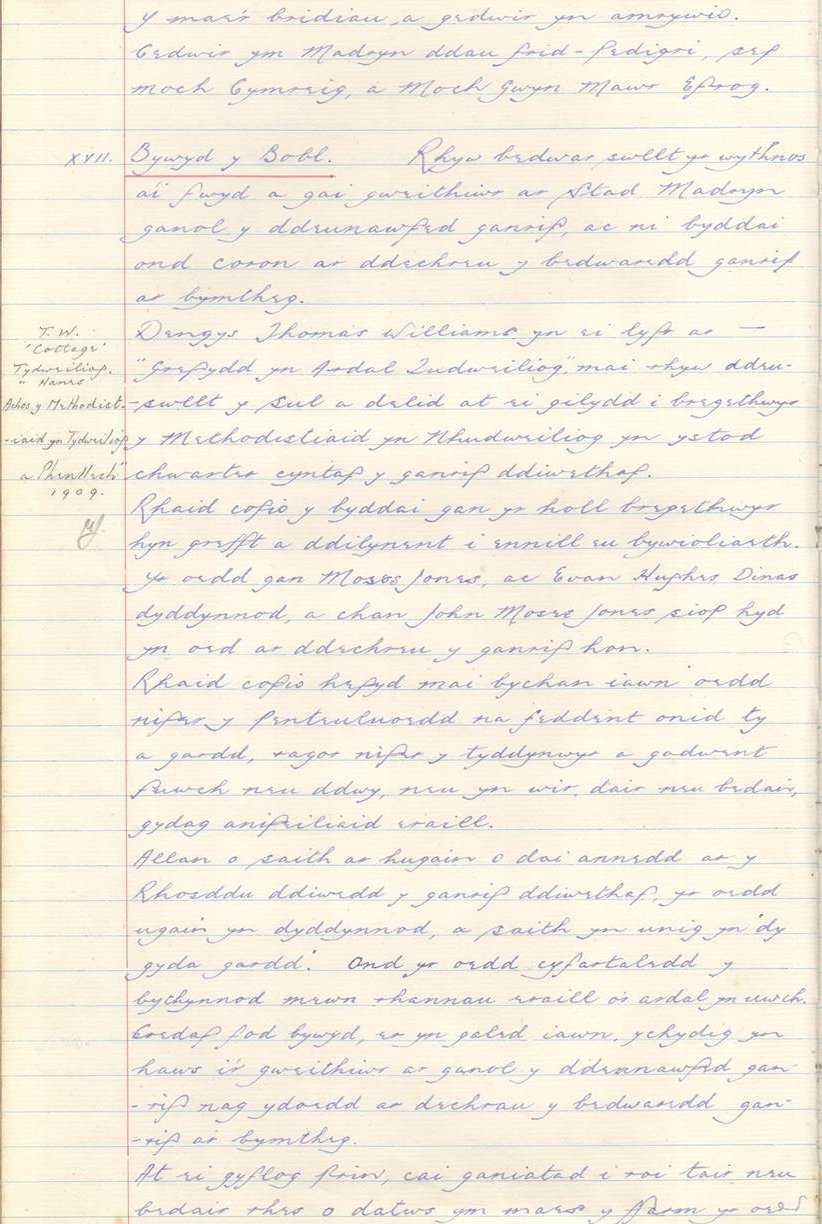 Y mae'r bridiau a gedwir yn amrywio.
Cedwir ym Madryn ddau frid-pedigri, sef
moch Cymreig, a Moch Gwyn Mawr Efrog.
XVII. Bywyd y Bobl. Rhyw bedwar swllt yr wythnos
a'i fwyd a gai gweithiwr ar Stad Madryn
ganol y ddeunawfed ganrif, ac ni byddai
ond coron ar ddechreu y bedwaredd ganrif
ar bymtheg.
T. W.
'Cottage'
Tydweiliog.
"Hanes
Achos y Methodist-
-iaid yn Tydweiliog
a Phenllech"
1909.
Dengys Thomas Williams yn ei lyfr ar —
"Grefydd yn Ardal Tudweiliog", mai rhyw ddeu-
-swllt y Sul a delid at ei gilydd i bregethwyr
y Methodistiaid yn Nhudweiliog yn ystod
chwarter cyntaf y ganrif ddiwethaf.
Rhaid cofio y byddai gan yr holl bregethwyr
hyn grefft a ddilynent i ennill eu bywioliaeth.
Yr oedd gan Moses Jones, ac Evan Hughes Dinas
dyddynnod, a chan John Moses Jones siop hyd
yn oed ar ddechreu y ganrif hon.
Rhaid cofio hefyd mai bychan iawn oedd
nifer y penteuluoedd na feddent onid ty
a gardd, ragor nifer y tyddynwyr a gadwent
fuwch neu ddwy, neu yn wir, dair neu bedair,
gydag anifeiliaid eraill.
Allan o saith ar hugain o dai annedd ar y
Rhosddu ddiwedd y ganrif ddiwethaf, yr oedd
ugain yn dyddynnod, a saith yn unig yn 'dy
gyda gardd'. Ond yr oedd cyfartaledd y
bychynnod mewn rhannau eraill o'r ardal yn uwch.
Credaf fod bywyd, er yn galed iawn, ychydig yn
haws i'r gweithiwr ar ganol y ddeunawfed gan-
-rif nag ydoedd ar dechrau y bedwaredd gan-
-rif ar bymtheg.
At ei gyflog prin, cai ganiatad i roi tair neu
bedair rhes o datws ym maes y ffarm yr oedd